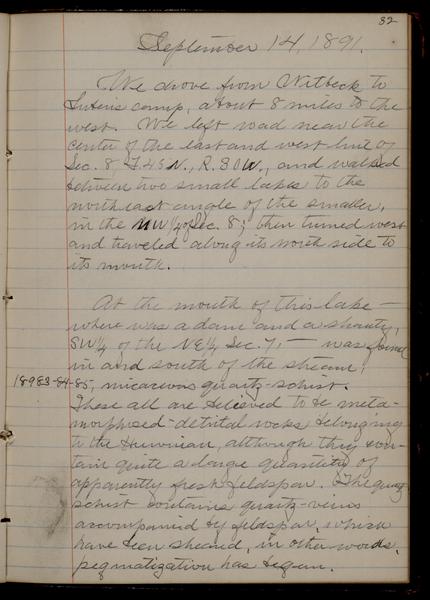 32
September 14, 1891.
We drove from Witbeck to
camp, about 8 miles to the
west. We left road near the
center of the east and west line of
Sec. 8, T.45N., R.30W., and walked
between two small lakes to the
north east angle of the smaller,
in the NW 1/4 of Sec. 8; then turned west
and traveled along its north side to
its mouth.
At the mouth of this lake —
where was a dam and a shanty,
SW1/4 of the NE1/4 Sec. 7, — was found
in and south of the stream,
18983-84-85, micaceous quartz-schist.
These all are believed to be meta-
morphosed detrital rocks belonging
to the Huronian, although they con-
tain quite a large quantity of
apparently fresh feldspar. The quartz
schist contains quartz-veins
accompanied by feldspar, which
have been sheared, in other words,
pegmatization has begun.